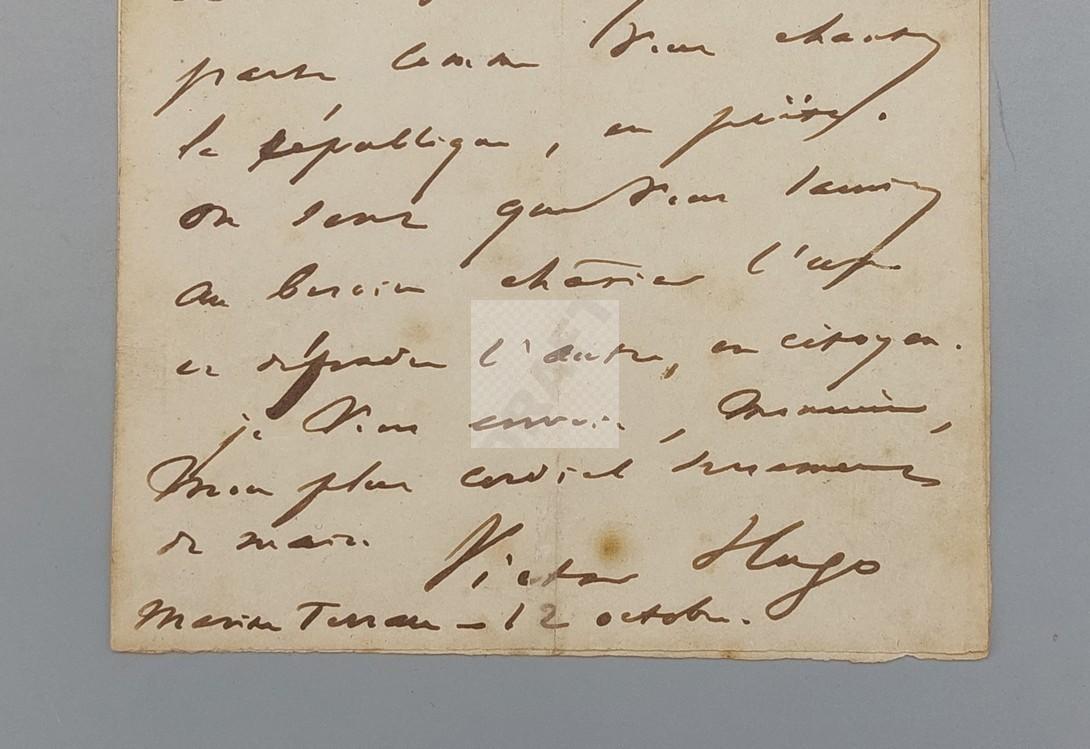 comme vous chantez
la république, en poëte.
On sent que vous sauriez
au besoin châtier
et défendre l'autre, en citoyen.
je vous envoie, Monsieur,
mon plus cordial serrement
de main.
Victor Hugo
Marine Terrace – 12 octobre.